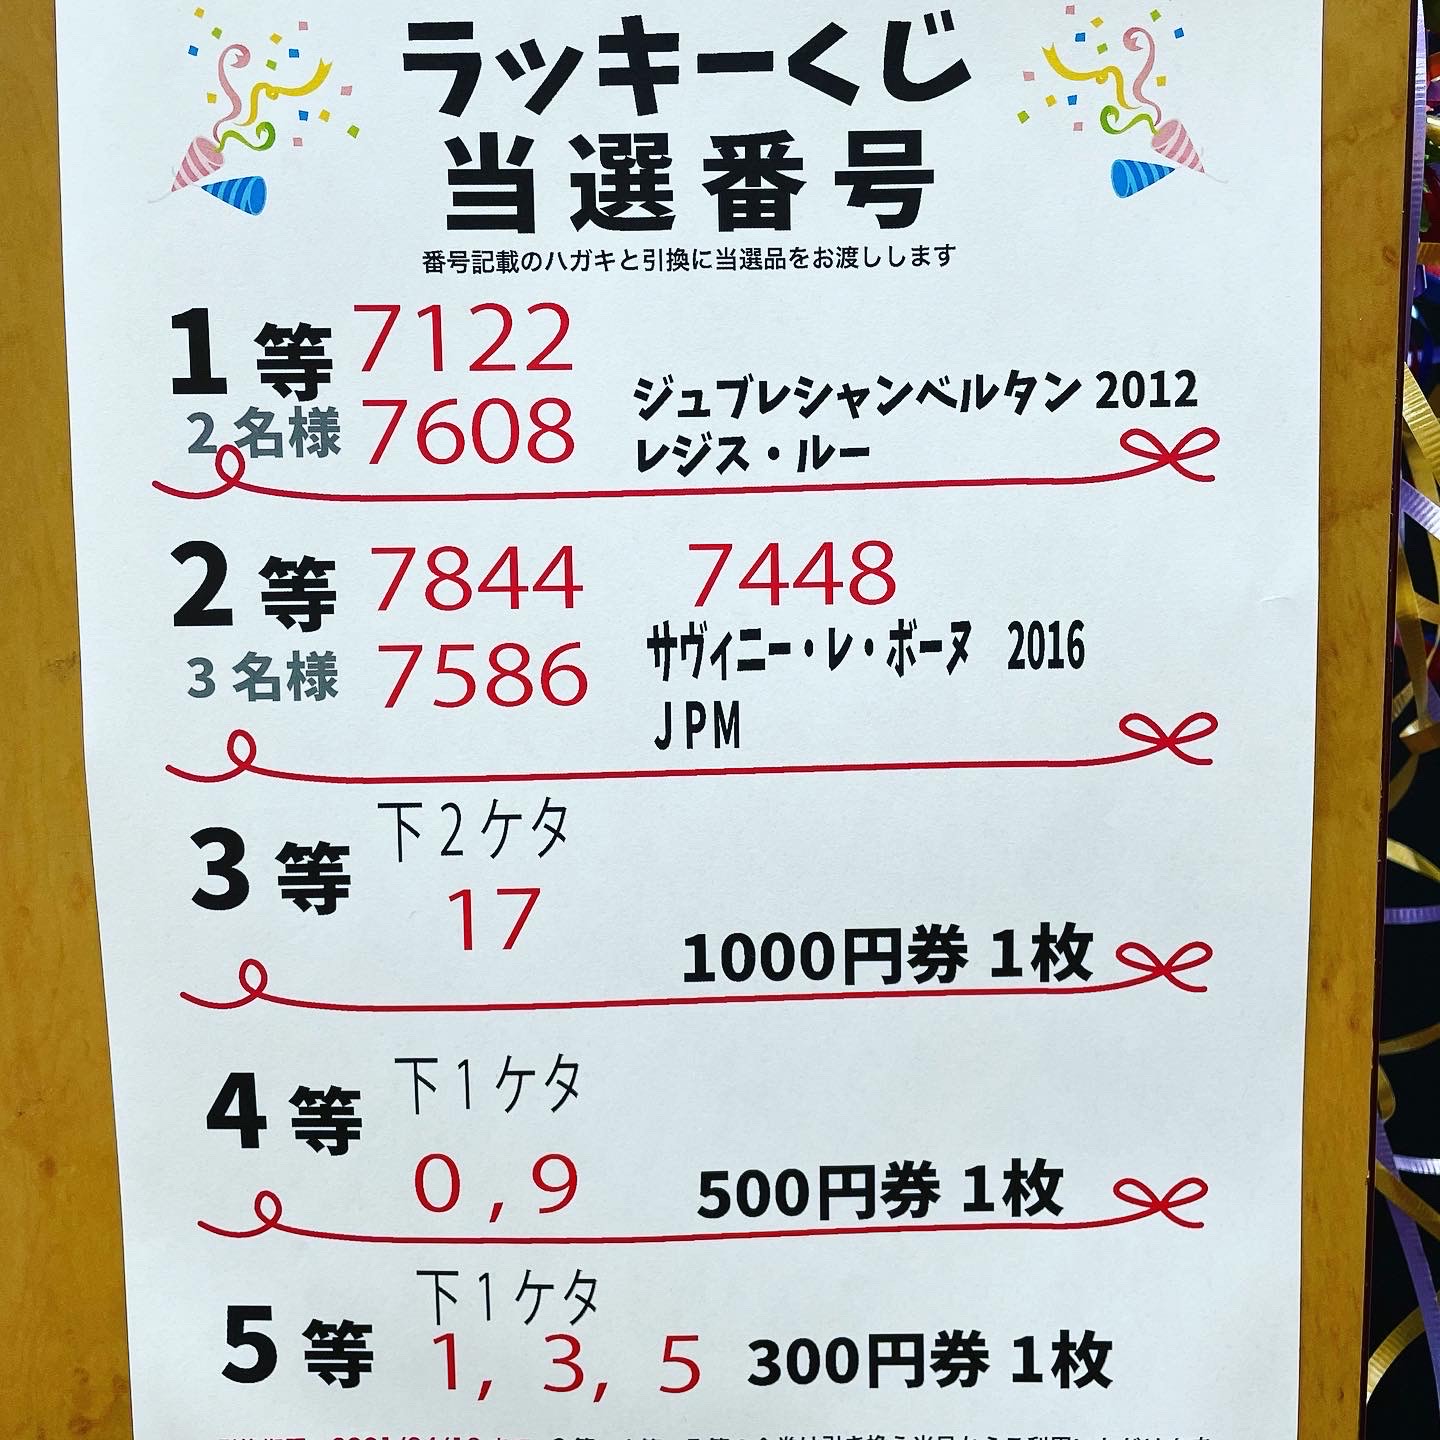 ラッキーくじ
当選番号
番号記載のハガキと引換に当選品をお渡しします
1等 7122
2名様 7608
ジュブレシャンベルタン 2012
レジス・ルー
2等 7844 7448
3名様 7586
サヴィニー・レ・ボーヌ 2016
JPM
3等 下2ケタ
17
1000円券 1枚
4等 下1ケタ
0 , 9
500円券 1枚
5等 下1ケタ
1, 3, 5 300円券 1枚